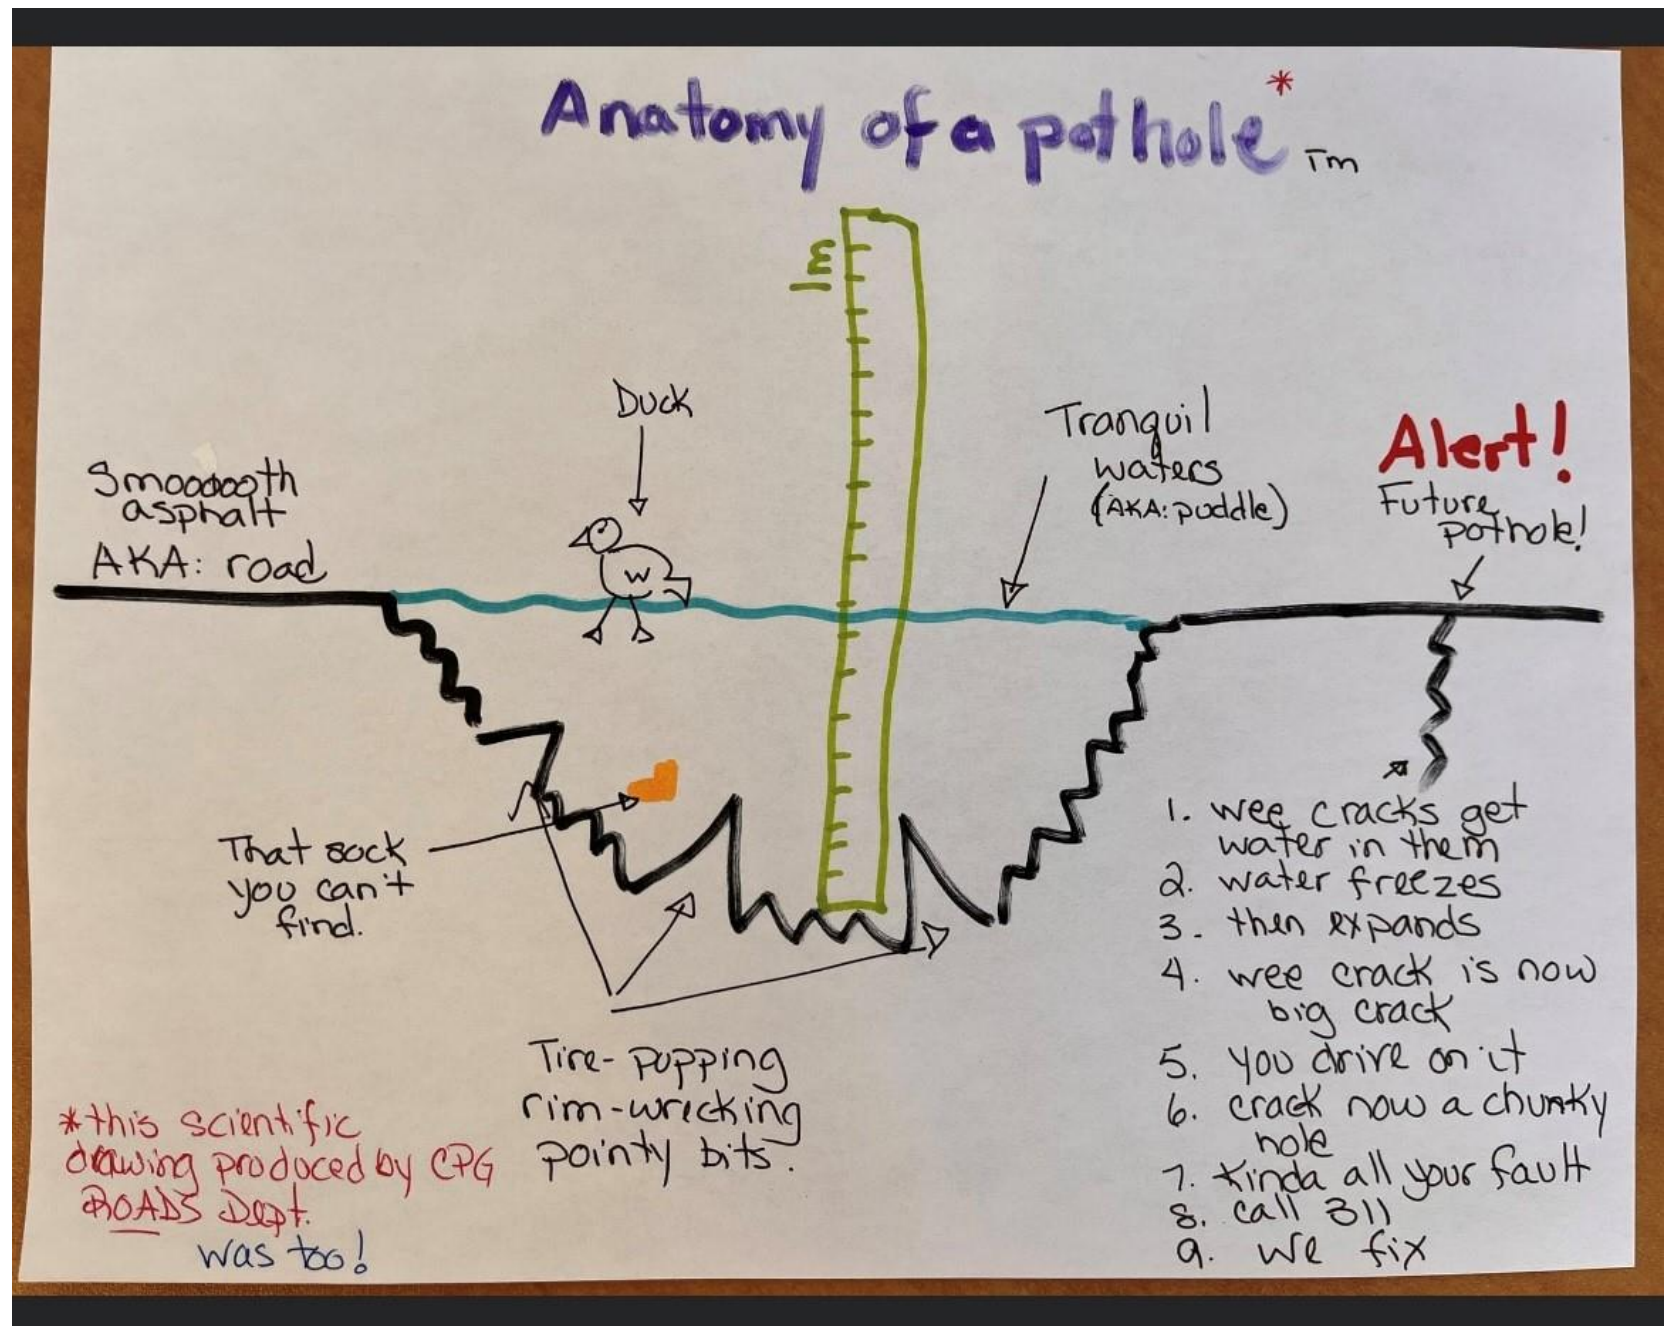 Anatomy of a pothole*
Tm
Duck
Tranquil
waters
(AKA: puddle)
Alert!
Future
pothole!
Smooooooth
asphalt
AKA: road
That sock
you can't
find.
Tire-popping
rim-wrecking
pointy bits.
1. wee cracks get
water in them
2. water freezes
3. then expands
4. wee crack is now
big crack
5. you drive on it
6. crack now a chunky
hole
7. Kinda all your fault
8. call 311
9. we fix
*this scientific
drawing produced by CPG
ROADS Dept.
was too!